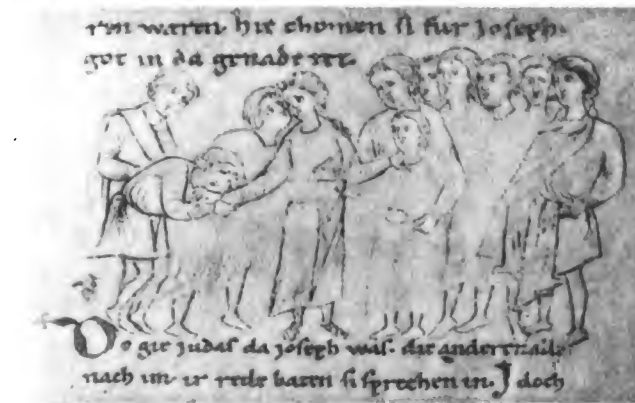 ren waren. hie chomen si fur Joseph.
got in da genade tet.
Do gie judas da joseph was. die andere alle
nach im. ir rede baten si sprechen in. J doch